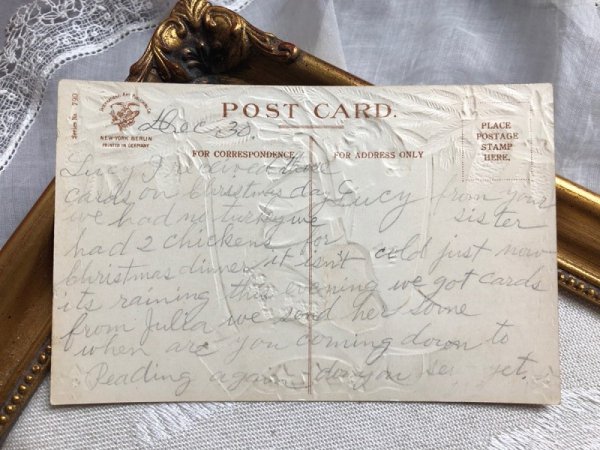 Series No. 730
INTERNATIONAL ART PUBL. CO.
NEW YORK BERLIN
PRINTED IN GERMANY
POST CARD.
PLACE
POSTAGE
STAMP
HERE.
FOR CORRESPONDENCE
FOR ADDRESS ONLY
Dec 30.
Lucy I received three
cards on Christmas day Lucy from your
we had no turkey we sister
had 2 chickens for
Christmas dinner it isn't cold just now
its raining this evening we got cards
from Julia we send her some
when are you coming down to
Reading again do you yet.